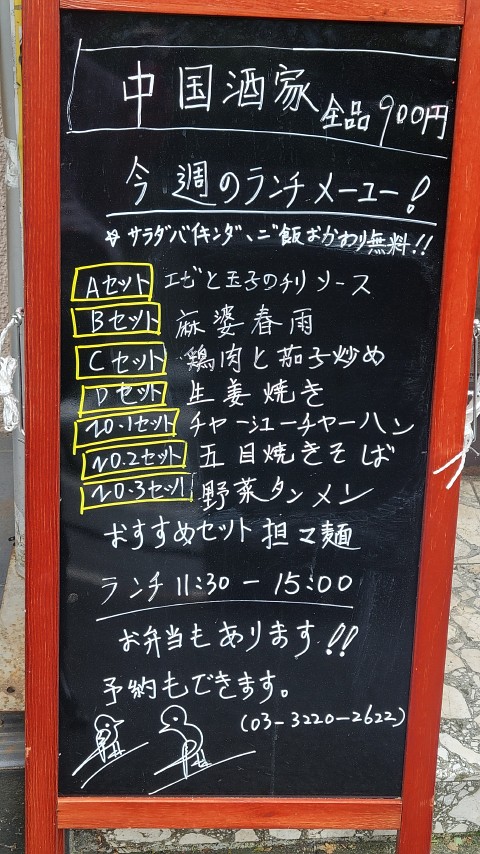 中国酒家 全品900円
今週のランチメーユー!
☆サラダバイキング、ご飯おかわり無料!!
Aセット エビと玉子のチリソース
Bセット 麻婆春雨
Cセット 鶏肉と茄子炒め
Dセット 生姜焼き
NO.1セット チャーシューチャーハン
NO.2セット 五目焼きそば
NO.3セット 野菜タンメン
おすすめセット 担々麺
ランチ 11:30ー15:00
お弁当もあります!!
予約もできます。
(03-3220-2622)